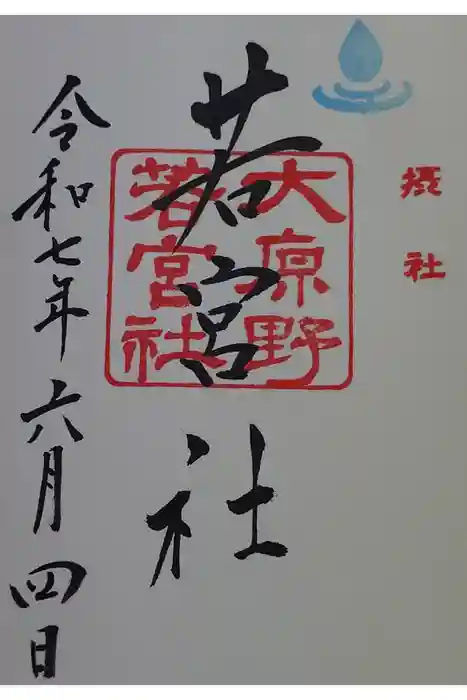 摂社
若宮社
大原野
若宮社
令和七年六月四日